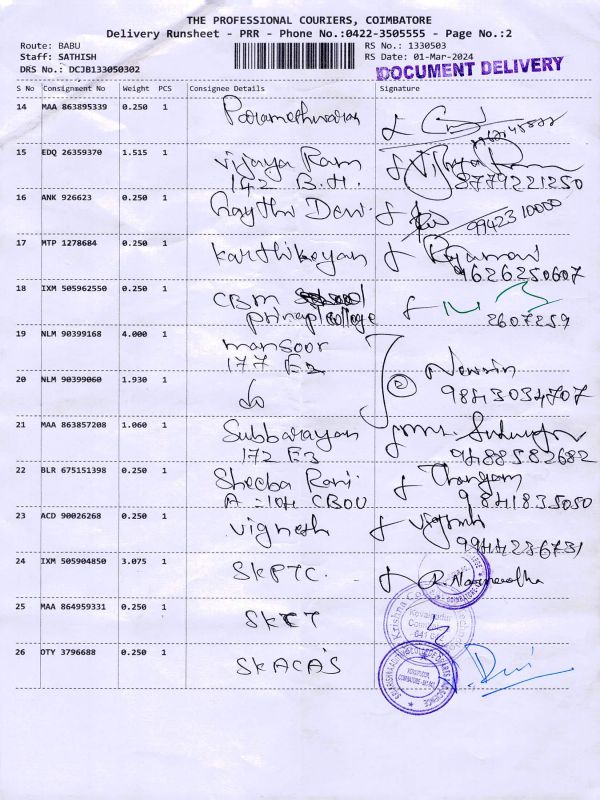 THE PROFESSIONAL COURIERS, COIMBATORE
Delivery Runsheet - PRR - Phone No.:0422-3505555 - Page No.:2
Route: BABU RS No.: 1330503
Staff: SATHISH RS Date: 01-Mar-2024
DRS No.: DCJB133050302
DOCUMENT DELIVERY
S No Consignment No Weight PCS Consignee Details Signature
14 MAA 863895339 0.250 1 Parameshwaran
15 EDQ 26359370 1.515 1 Vijaya Ram
142 B.H. 8779221250
16 ANK 926623 0.250 1 Gaythri Devi 9942310000
17 MTP 1278684 0.250 1 Karthikeyan
9626250607
18 IXM 505962550 0.250 1 CBM
college 2607259
19 NLM 90399168 4.000 1 mansoor
177 E2
20 NLM 90399060 1.930 1 do
9843034707
21 MAA 863857208 1.060 1 Subbarayan
172 E3 9488582682
22 BLR 675151398 0.250 1 Sheeba Rani
A-104 CBOU 9841835050
23 ACD 90026268 0.250 1 Vignesh
9944236731
24 IXM 505904850 3.075 1 SKPTC.
25 MAA 864959331 0.250 1 SKCT
26 OTY 3796688 0.250 1 SKACAS